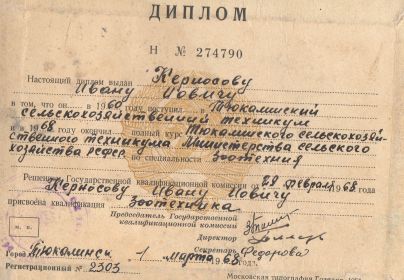 ДИПЛОМ
Н № 274790
Настоящий диплом выдан Керносову
Ивану Иовичу
в том, что он в 1960 году поступил в Тюкалинский
сельскохозяйственный техникум
и в 1968 окончил полный курс Тюкалинского сельскохозяй-
ственного техникума Министерства сельского
хозяйства РСФСР по специальности Зоотехния
Решением Государственной квалификационной комиссии от 29 февраля 1968 года
Керносову Ивану Иовичу
присвоена квалификация Зоотехника
Председатель Государственной
квалификационной комиссии
Директор
М. П.
Секретарь Федорова
Город Тюкалинск 1 марта 1968 г.
Регистрационный № 2303
Московская типография